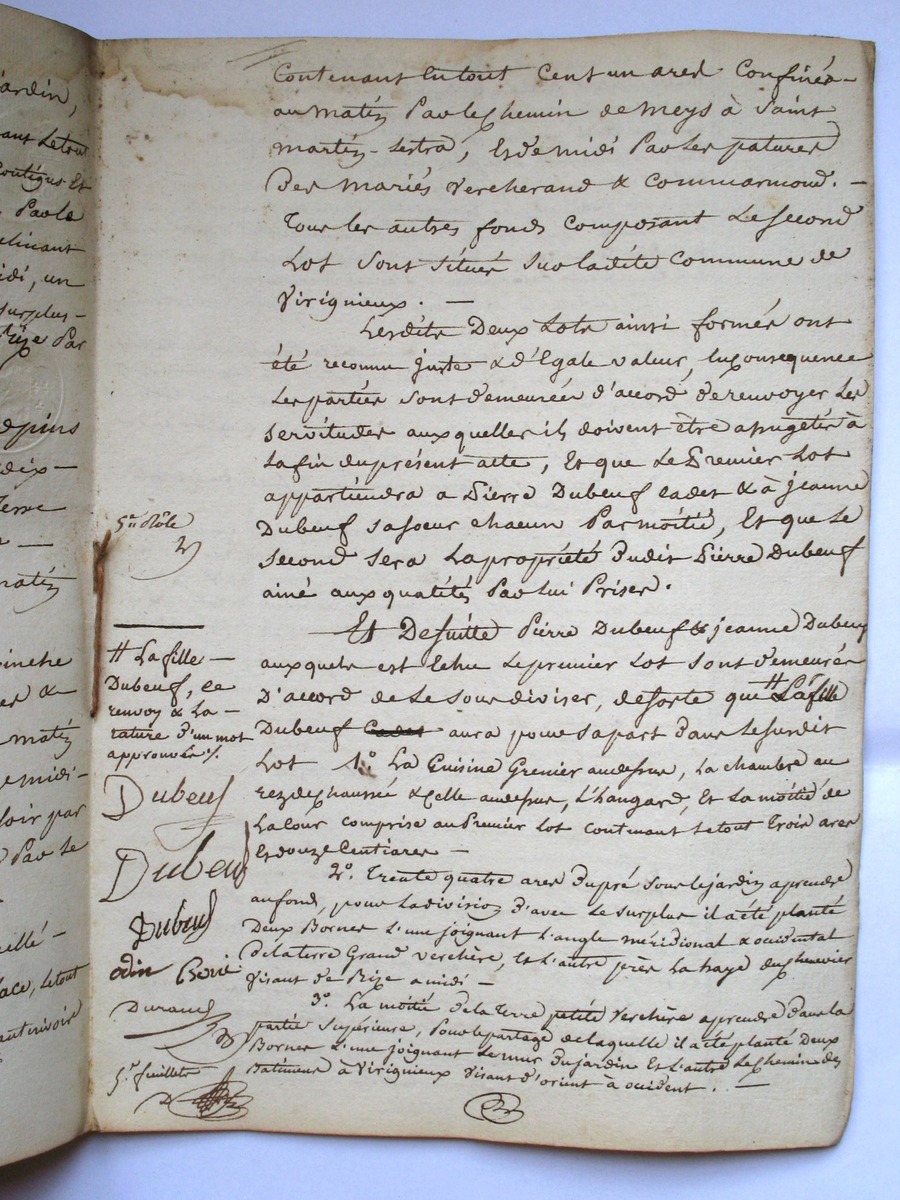 ardin,
ant Letout
Contigus Et
Parle
clinant
idi, un
surplus -
Bize Par
epins
dix -
Terre
matin
inche
er &
matin
e midi -
loir par
Par Le
eillé -
ace, Letout
Contenant En tout Cent un ares Confinés -
au matin Par le Chemin de meys à Saint
martin - Lestra, Et de midi Par Les patures
Des mariés Vercherand & Commarmond. -
Tous les autres fonds Composant Le Second
Lot Sont Situés Sur Ladite Commune de
Virignieux. -
Lesdits Deux Lots ainsi formés ont
été reconnu juste & d'Egale valeur, En Consequence
Les parties Sont demeurées d'accord de renvoyer Les
Servitudes auxquelles ils doivent être assugétis à
La fin du présent acte, Et que Le Premier Lot
appartiendra a Pierre Dubeuf cadet & à jeanne
Dubeuf sa soeur chacun Par moitié, Et que Le
Second Sera La propriété dudit Pierre Dubeuf
ainé aux quatités Par Lui Prises.
Et De Suitte Pierre Dubeuf & jeanne Dubeuf
auxquels est Echu Le premier Lot Sont demeurés
D'accord de Le Sous diviser, de Sorte que # La fille
Dubeuf Cadet aura pour Sa part Dans Le Susdit
Lot 1.º La Cuisine Grenier au dessus, La chambre au
rez de chaussée & Celle au dessus, L'hangard, Et La moitié de
La Cour Comprise au Premier Lot Contenant Le tout Trois ares
Et douze Centiares -
2º. Trente quatre ares Du pré Sous Le jardin a prendre
au fond, pour La division D'avec Le Surplus il a été planté
Deux Bornes L'une joignant L'angle méridional & occidental
De La terre Grand verchère, Et L'autre près La haye du chenevier
Visant de Bize a midi -
3º. La moitié De La Terre petite Verchère a prendre Dans La
partie Supérieure, Pour Le partage de Laquelle il a été planté Deux
Bornes L'une joignant Le mur Du jardin Et L'autre Le Chemin des
Batimens à Virignieux Visant d'orient à occident. -
5.e Rôle
# La fille -
Dubeuf, ce
renvoy & La -
rature d'un mot
approuvés ./.
Dubeuf
Dubeuf
Dubeuf
odin
Durand
5.e feuillets